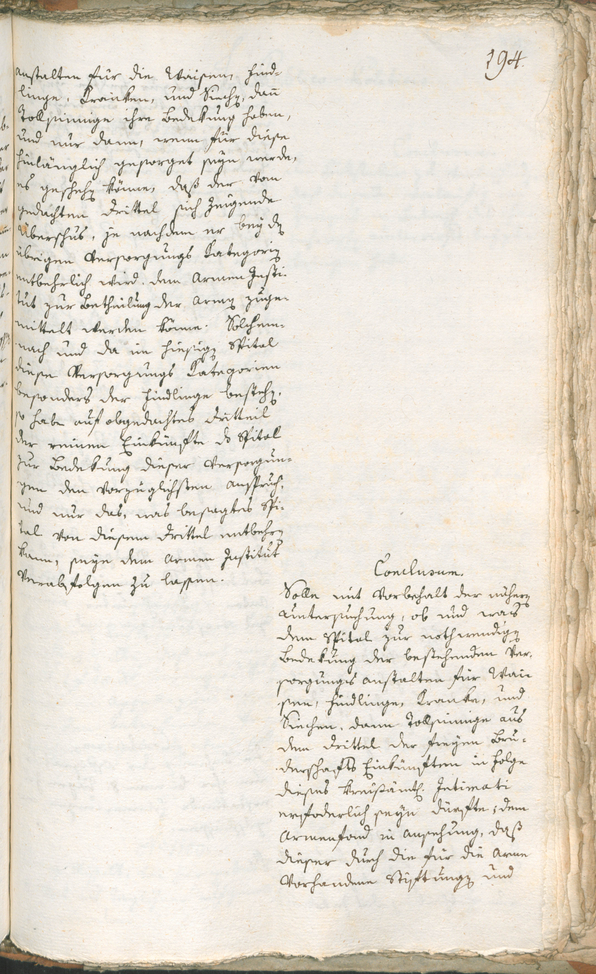 194.
anstalten für die Waisen, Find-
linge, Kranken, und Sieche, dan
Tollsinnige ihre Bedekung haben,
und nur dann, wenn für diese
hinlänglich gesorget seyn werde,
es geschehen könne, daß der vom
gedachten Drittel sich zeigende
überschus, je nachdem er bey den
übrigen Versorgungs Categorien
entbehrlich wird, dem Armen Insti-
tut zur Betheilung der Armen zuge-
mittelt werden könne. Solchem-
nach und da im hiesigen Spital
diese Versorgungs Categorien
besonders der Findlinge bestehen,
so habe auf obgedachtes Dritteil
der reinen Einkünfte des Spital
zur Bedekung dieser Versorgun-
gen den vorzüglichsten Anspruch,
und nur das, was besagtes Spi-
tal von diesem Drittel entbehren
kann, seye dem Armen Institut
verabfolgen zu lassen.
Conclusum.
Solle mit Vorbehalt der nähern
Untersuchung, ob und was
dem Spital zur nothwendigen
Bedekung der bestehenden Ver-
sorgungs anstalten für Wai-
sen, Findlinge, Kranke, und
Siechen, dann Tollsinnige aus
dem Drittel der freyen Bru-
derschafts Einkünften in Folge
dieses Kreisämtl. Intimati
erfoderlich seyn dürfte, dem
Armenfond in Ansehung, daß
dieser durch die für die Arme
vorhandene Stiftungen und